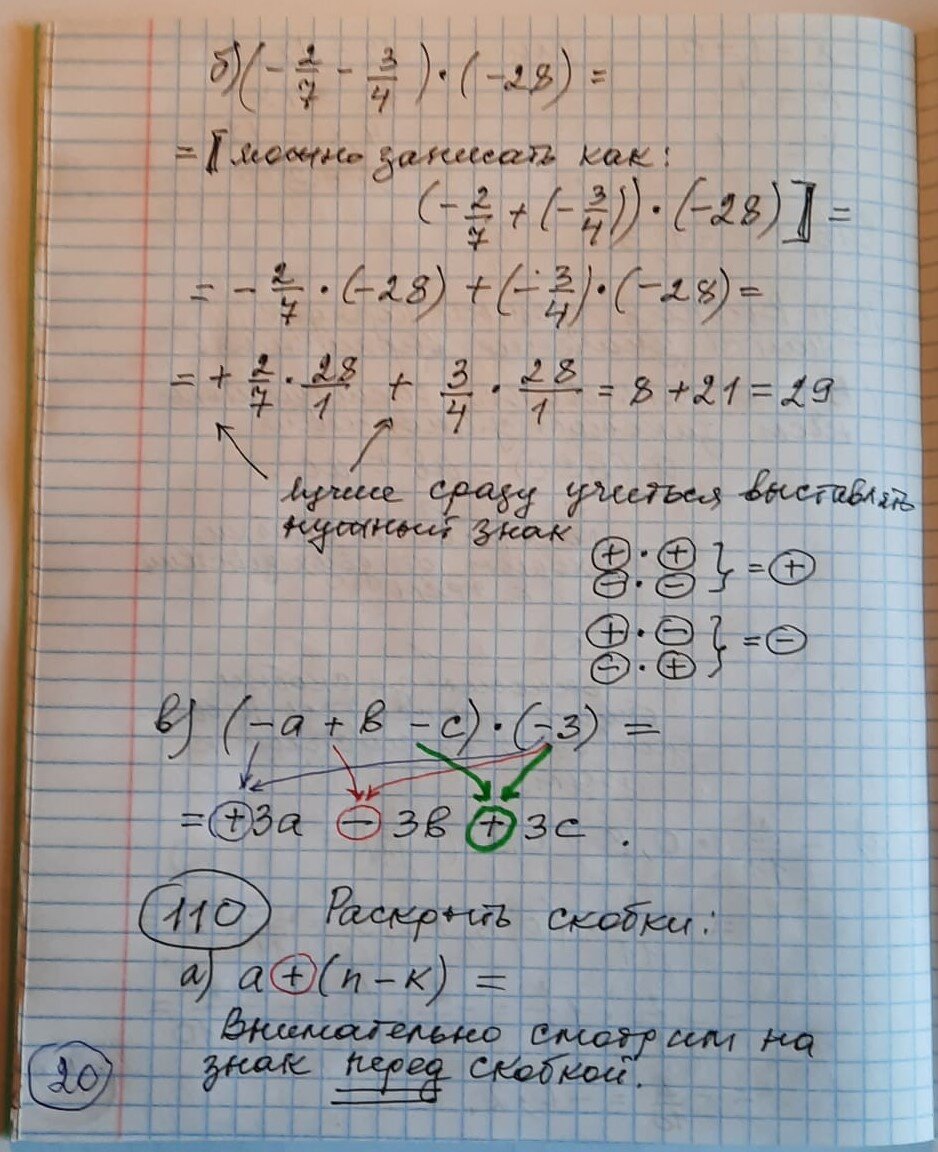 б) (-2/7 - 3/4) · (-28) =
= [можно записать как:
(-2/7 + (-3/4)) · (-28)] =
= -2/7 · (-28) + (-3/4) · (-28) =
= + 2/7 · 28/1 + 3/4 · 28/1 = 8 + 21 = 29
лучше сразу учиться выставлять
нужный знак
⊕ · ⊕ } = ⊕
⊖ · ⊖
⊕ · ⊖ } = ⊖
⊖ · ⊕
в) (-а + в - с) · (-3) =
= ⊕3а ⊖ 3в ⊕ 3с .
110 Раскрыть скобки:
а) а ⊕ (n - к) =
Внимательно смотрим на
знак перед скобкой.
20